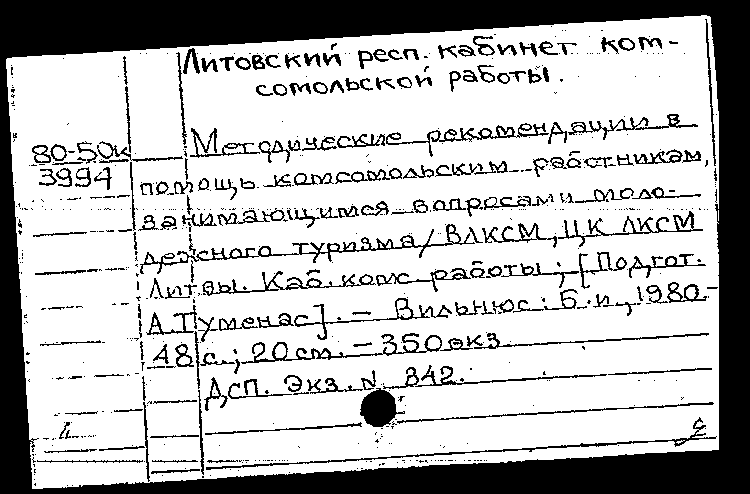 Литовский респ. кабинет ком-
сомольской работы.
80-50к
3994
Методические рекомендации в
помощь комсомольским работникам,
занимающимся вопросами моло-
дежного туризма/ВЛКСМ, ЦК ЛКСМ
Литвы. Каб. комс работы; [Подгот.
А.Туменас]. - Вильнюс: Б.и., 1980.-
48 с.; 20 см. - 350 экз.
ДСП. Экз. N 342.